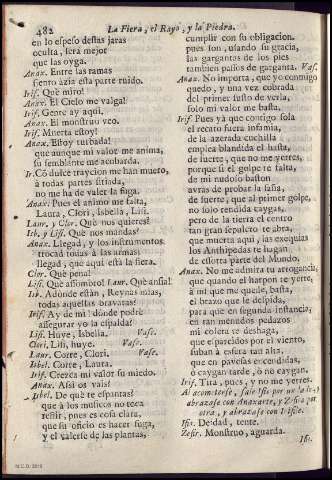 482
La Fiera, el Rayo, y la Piedra.
en lo espeso destas jaras
oculta, será mejor
que las oyga.
Anax. Entre las ramas
siento àzia esta parte ruido.
Irif. Què miro!
Anax. El Cielo me valga!
Irif. Gente ay aqui.
Anax. El monstruo veo.
Irif. Muerta estoy!
Anax. Estoy turbada!
que aunque mi valor me anima,
su semblante me acobarda.
Ir. Co dulce traycion me han muerto,
à todas partes sitiada,
no me ha de valer la fuga.
Anax. Pues el animo me falta,
Laura, Clori, Isbella, Lisi.
Laur. y Clor. Què nos quieres?
Isb. y Lisi. Què nos mandas?
Anax. Llegad, y los instrumentos
trocad todas à las armas:
llegad, que aqui està la fiera.
Clor. Què pena!
Lisi. Què assombro! Laur. Què ansia!
Irif. Adonde estàn, Reynas mias,
todas aquellas bravatas?
Irif. Ay de mi! dònde podrè
assegurar yo la espalda?
Lisi. Huye, Isbella. Vase.
Clori. Lisi, huye. Vase.
Laur. Corre, Clori. Vase.
Isbel. Corre, Laura.
Irif. Crezca mi valor su miedo.
Anax. Assi os vais?
Isbel. De què te espantas?
que à los musicos no toca
reñir, pues es cosa clara,
que su oficio es hacer fuga,
y el valerse de las plantas,
cumplir con su obligacion.
pues son, usando su gracia,
las gargantas de los pies
tambien passos de garganta. Vas.
Anax. No importa, que yo conmigo
quedo, y una vez cobrada
del primer susto de verla,
solo mi valor me basta.
Irif. Pues ya què contigo sola
el recato fuera infamia,
de la azerada cuchilla
emplea blandida el hasta,
de suerte, que no me yerres,
porque si el golpe te falta,
de mi nudoso baston
avràs de probar la saña,
de suerte, que al primer golpe,
no solo rendida caygas,
pero de la tierra el centro
tan gran sepulcro te abra,
que muerta aqui, las exequias
los Antipodas te hagan
de essotra parte del Mundo.
Anax. No me admira tu arrogancia,
que quando el harpon te yerre,
à mi que me quede, basta,
el brazo que le despida,
para que en segunda instancia,
en tan menudos pedazos
mi colera te deshaga,
que esparcidos por el viento,
suban à esfera tan alta,
que en pavesas encendidas,
ò caygan tarde, ò no caygan.
Irif. Tira, pues, y no me yerres.
Al acometerse, sale Isis por un lado, y
abrazase con Anaxarte, y Zefiro por
otra, y abrazase con Irifile.
Isis. Deidad, tente.
Zefir. Monstruo, aguarda.
Isi.